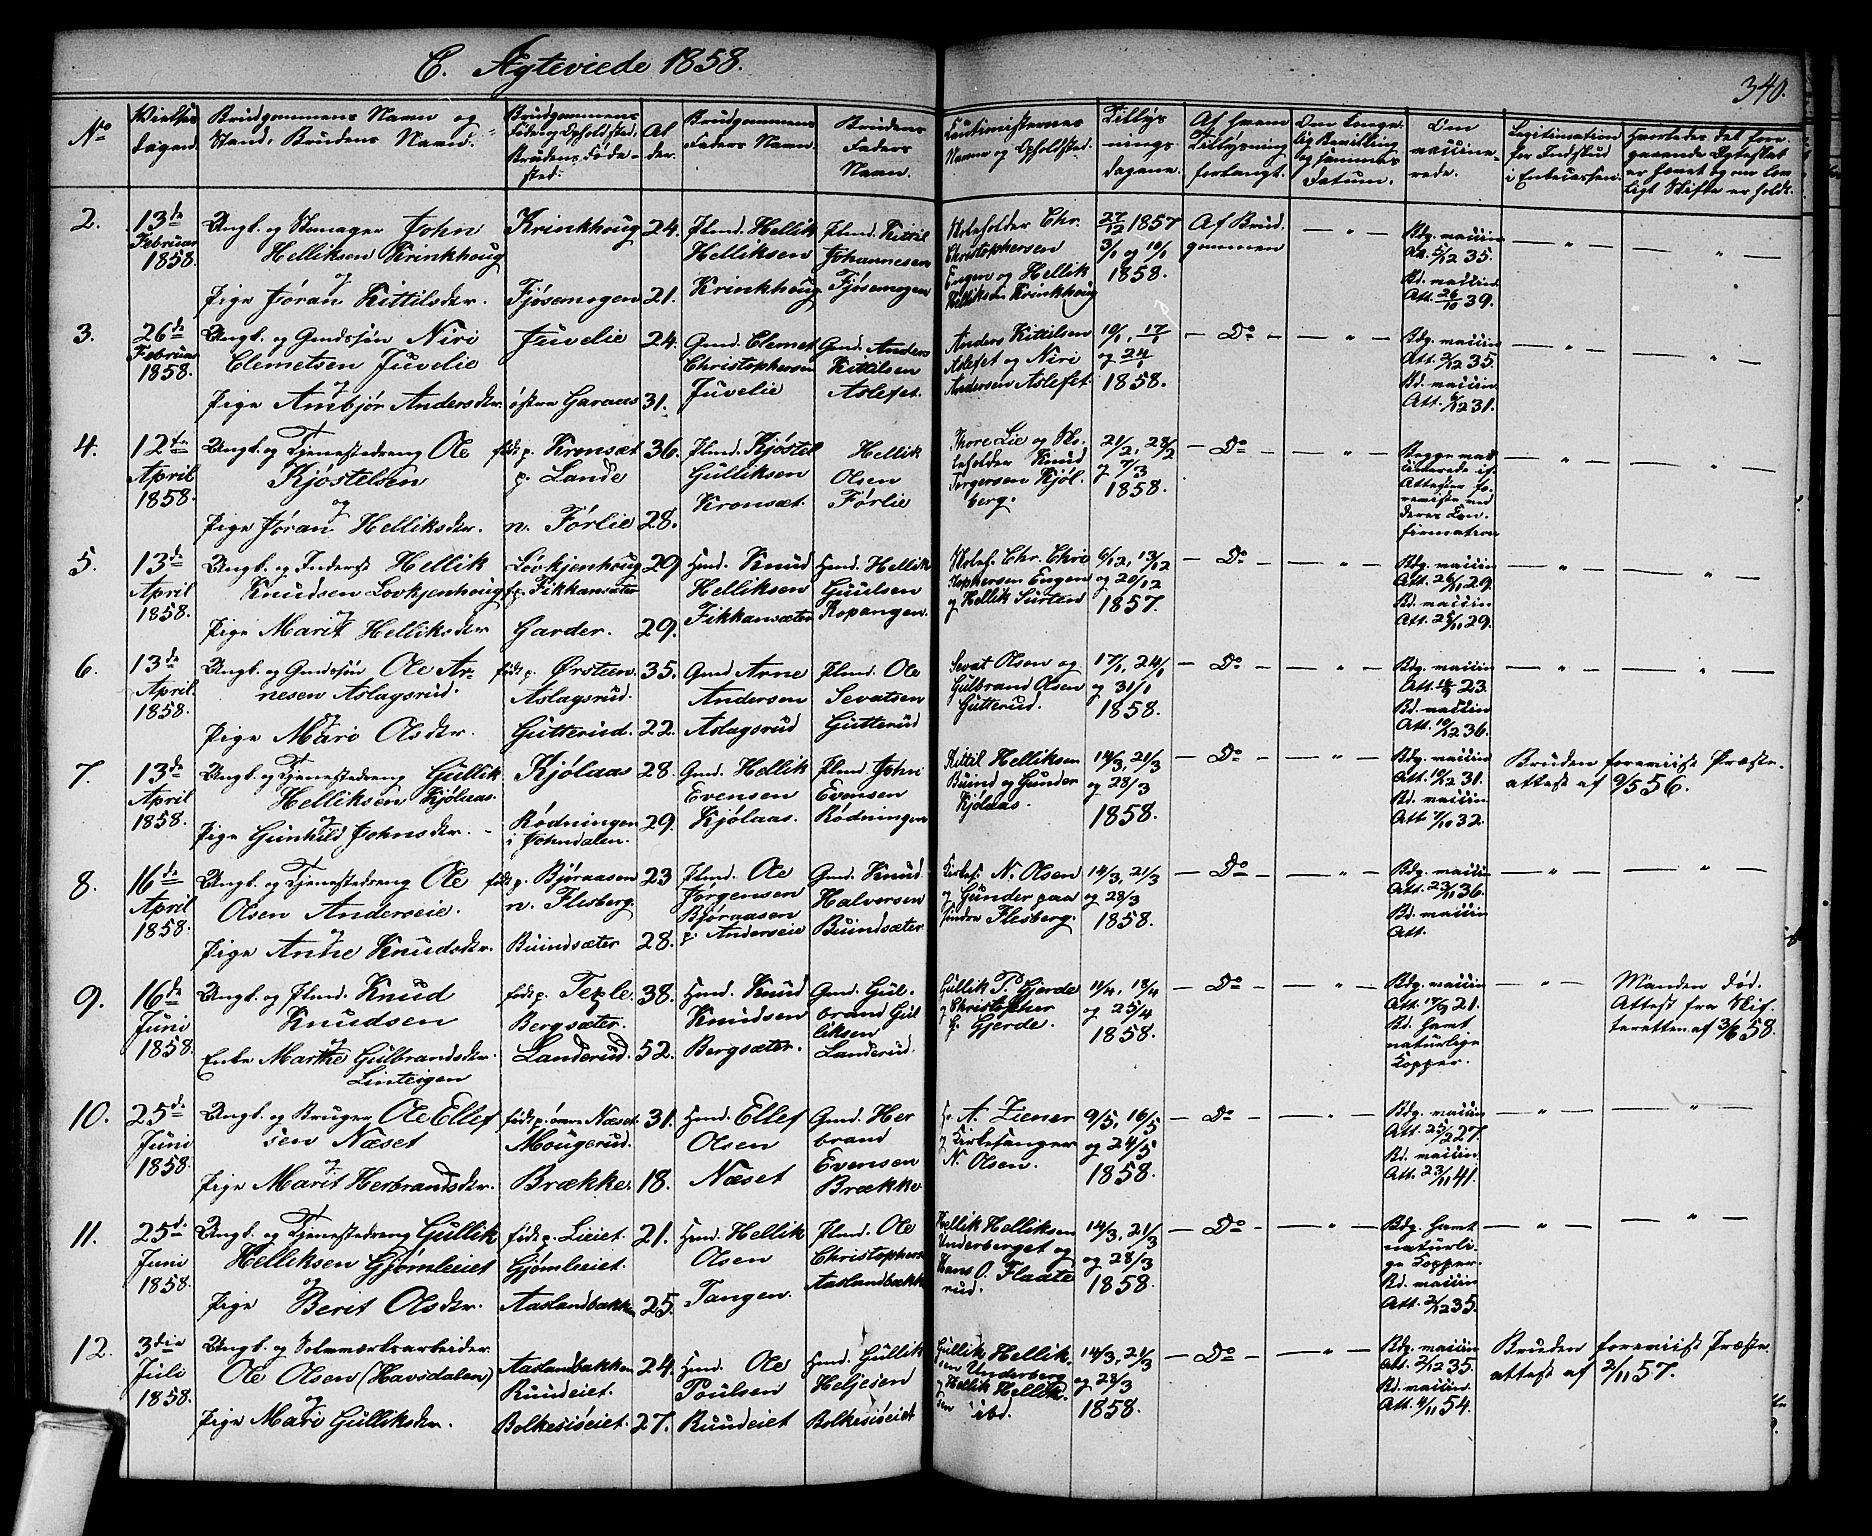 C. Ægteviede 1858.
340.
No
Vielses dagen.
Brudgommens Navn og Stand, Brudens Navn.
Brudgommens Føde og Opholdsted. Brudens Fødested.
Alder.
Brudgommens Faders Navn.
Brudens Faders Navn.
Cautionisternes Navne og Opholdsted.
Tillysningsdagene.
Af hvem Tillysning forlangt.
Om Congelig Bevilling og sammes Datum.
Om vaccinerede.
Legitimation for Indskud i Enkecassen.
Hvorledes det foregaaende Ægteskab er hævet og om lovligt Skifte er holdt.
2.
13de Februar 1858.
Ungk. og Skomager John
Helliksen Krinkhoug
og
Pige Jøran Kittilsdr.
Krinkhoug
Fjøsemogen
24.
21.
Hmd. Hellik
Helliksen
Krinkhoug
Kittil
Johannesen
Fjøsemogen
Skoleholder Chr.
Christophersen
Engen og Hellik
Helliksen Krinkhoug
27/12 1857
3/1 og 10/1
1858.
Af Brudgommen
— " —
Bdg. vaccin
Att. 5/12 35.
Bd. vaccin.
Att. 26/10 39.
— " —
— " —
3.
26de Februar 1858.
Ungk. og Gmdssøn Niri
Clemetsen Juvelie
og
Pige Ambjør Andersdr.
Juvelie
østre Garaas
24.
31.
Gmd. Clemet
Christophersen
Juvelie
Gmd. Anders
Kittilsen
Aslefet.
Anders Kittilsen
Aslefet og Niri
Andersen Aslefet.
10/1, 17/1
og 24/1
1858.
— Do —
— " —
Bdg. vaccin
Att. 2/12 35.
Bd. vaccin
Att. 6/12 31.
— " —
— " —
4.
12te April 1858.
Ungk. og Tjenestedreng Ole
Kjøstelsen
og
Pige Jøran Helliksdr.
født p. Kronsæt
p. Lande
n. Førlie
36.
28.
Kjøstel
Gulliksen
Kronsæt.
Hellik
Olsen
Førlie
Thore Lie og Skoleholder Knud
Torgersen Kjølberg.
21/2, 28/2
og 7/3
1858.
— Do —
— " —
Begge vaccinerede if.
Attester foreviste ved
deres Confirmation
— " —
— " —
5.
13de April 1858.
Ungk. og Inderst Hellik
Knudsen Lovkjenhoug
og
Pige Marit Helliksdr
Lövkjenhoug
f. p. Fikkansæter
Garder.
29
29.
Hmd. Knud
Helliksen
Fikkansæter
Hmd. Hellik
Guulsen
Kopangen.
Skolef. Chr. Christophersen Engen
og Hellik Surten
6/12, 13/12
og 20/12
1857.
— Do —
— " —
Bdg. vaccin
Att. 26/11 29.
Bd. vaccin
Att. 25/11 29.
— " —
— " —
6.
13de April 1858.
Ungk. og Gmdssøn Ole Arnesen Aslagsrud.
og
Pige Mari Olsdr.
født p. Ørsteen
Aslagsrud.
Gutterud.
35.
22.
Gmd Arne
Andersen
Aslagsrud
Ole
Sevatsen
Gutterud
Sevat Olsen og
Gulbrand Olsen
Gutterud.
17/1, 24/1
og 31/1
1858.
— Do —
— " —
Bdg. vaccin
Att. 23.
Bd. vaccin
Att. 10/12 36.
— " —
— " —
7.
13de April 1858.
Ungk. og Tjenestedreng Gullik
Helliksen Kjølaas.
og
Pige Gunhild Johnsdr.
Kjølaas
Rødningen
i Johndalen.
28.
29.
Gmd. Hellik
Evensen
Kjølaas.
John
Evensen
Rødningen
Kittil Helliksen
Buind og Gunder
Kjølaas.
14/3, 21/3
og 28/3
1858.
— Do —
— " —
Bdg. vaccin
Att. 10/12 31.
Bd. vaccin.
Att. 7/10 32.
Bruden foreviist Præsteattest af 9/5 56.
8.
16de April 1858.
Ungk. og Tjenestedreng Ole
Olsen Anderseie.
og
Pige Anne Knudsdr.
født p. Bjøraasen
n. Flesberg.
Buindsæter
23
28.
Ole
Jørgensen
Bjøraasen
p. Anderseie
Gmd. Knud
Halvorsen
Buindsæter
Kirkes. N. Olsen
og Gunder paa
søndre Flesberg.
14/3, 21/3
og 28/3
1858.
— Do —
— " —
Bdg. vaccin
Att. 23/11 36.
Bd. vaccin
Att.
— " —
— " —
9.
16de Juni 1858.
Ungk. og Knud
Knudsen
og
Enke Marthe Gulbrandsdr.
Linteigen
født p. Teple
Bergsæter.
Landerud.
38.
52.
Hmd. Knud
Knudsen
Bergsæter.
Gmd. Gulbrand Gulliksen
Landerud.
Gullik P. Gjerde
og Christopher
G. Gjerde.
11/4, 18/4
og 25/4
1858.
— Do —
— " —
Bdg. vaccin
Att. 17/9 21.
Bd. havt
naturlige
Kopper.
— " —
Manden død.
Attest fra Skifteretten af 3/6 58.
10.
25de Juni 1858.
Ungk. og Bruger Ole Ellefsen Næset
og
Pige Marit Herbrandsdr.
født p. øvre Næset
Mougerud.
Brække.
31.
18.
Hmd. Ellef
Olsen
Næset
Gmd. Herbrand
Evensen
Brække
A. Ziener
og Kirkesanger
N. Olsen.
9/5, 16/5
og 24/5
1858.
— Do —
— " —
Bdg. vaccin
Att. 25/2 27.
Bd. vaccin.
Att. 23/11 41.
— " —
— " —
11.
25de Juni 1858.
Ungk. og Tjenestedreng Gullik
Helliksen Gjømleeiet
og
Pige Berit Olsdr.
født p. Lieiet.
Gjømleeiet.
Aaslandbakken
21.
25.
Hmd. Hellik
Olsen
Tangen.
Ole
Christophers.
Aaslandbakk
Hellik Helliksen
Underberget og
Hans O. Flaaterud.
14/3, 21/3
og 28/3
1858.
— Do —
— " —
Bdg. havt
naturlige Kopper.
Bd. vaccin
Att. 2/12 35.
— " —
— " —
12.
3die Juli 1858.
Ungk. og Sølvværksarbeider
Ole Olsen (Havsdalen)
og
Pige Mari Gulliksdr.
Aaslandbakken
Ruudeiet.
Bolkesiøeiet.
24.
27.
Hmd. Ole
Poulsen
Ruudeiet
Hmd. Gullik
Heljesen
Bolkesiøeiet
Gullik Helliksen Underberg
og Hellik Helliksen ibd.
14/3, 21/3
og 28/3
1858.
— Do —
— " —
Bdg. vaccin
Att. 2/12 35.
Bd. vaccin.
Att. 4/11 54.
Bruden foreviist Præsteattest af 2/11 57.